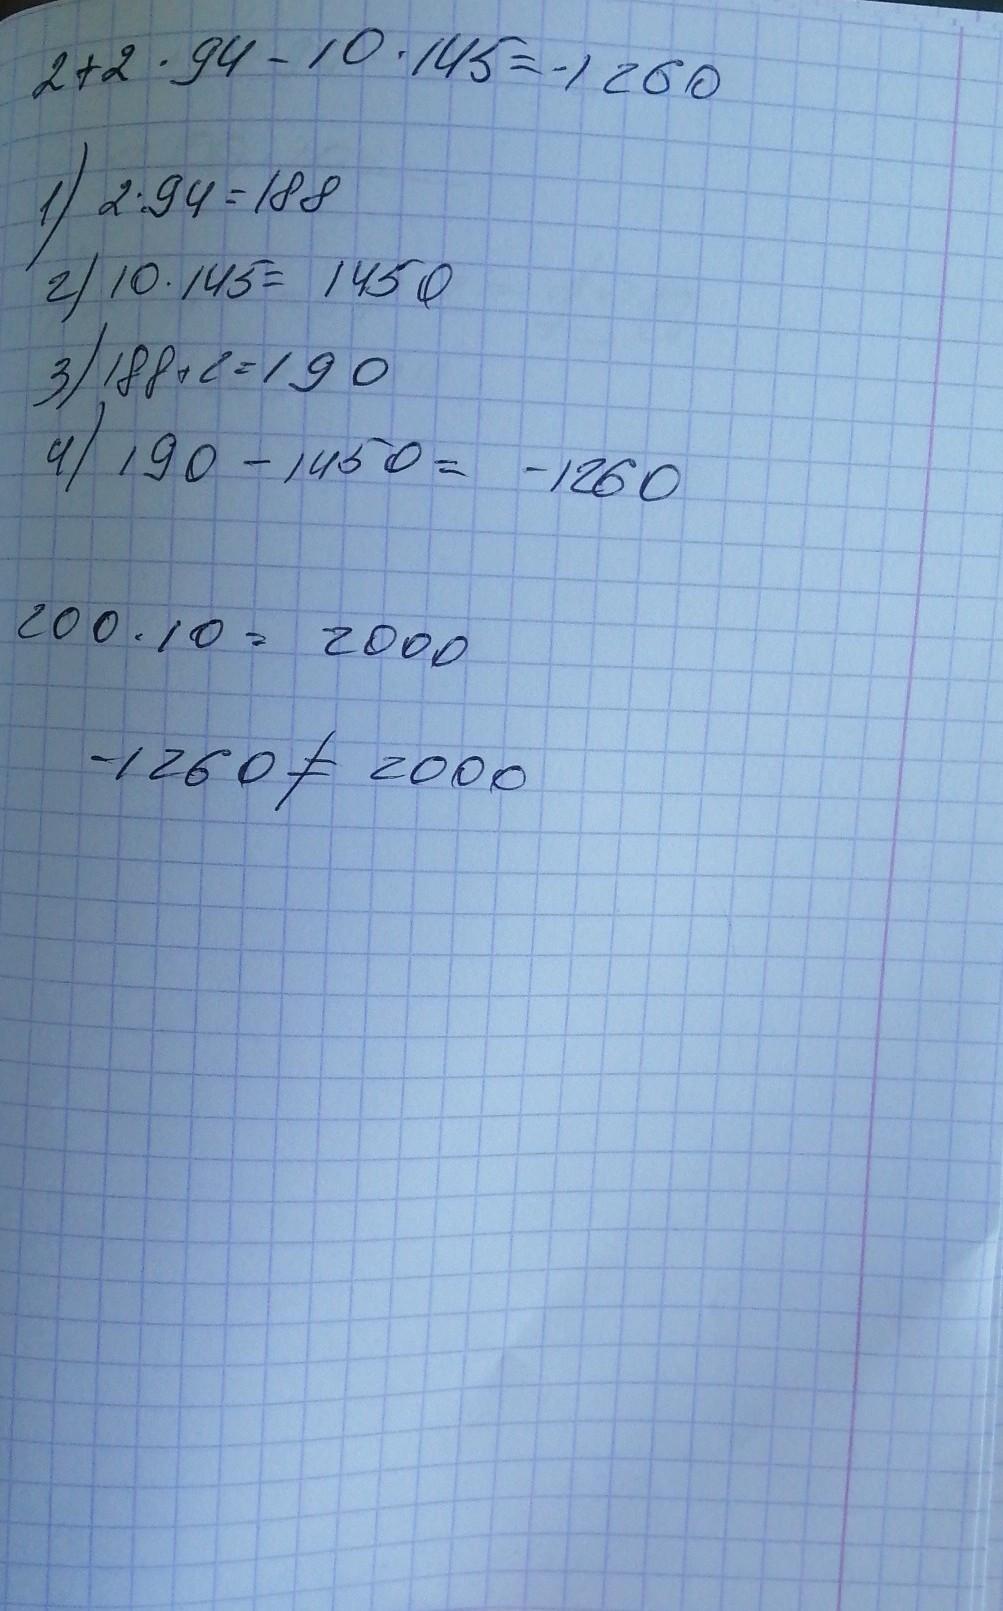 2+2·94-10·145=-1260
1) 2·94=188
2) 10·145= 1450
3) 188+2=190
4) 190-1450= -1260
200·10= 2000
-1260≠2000